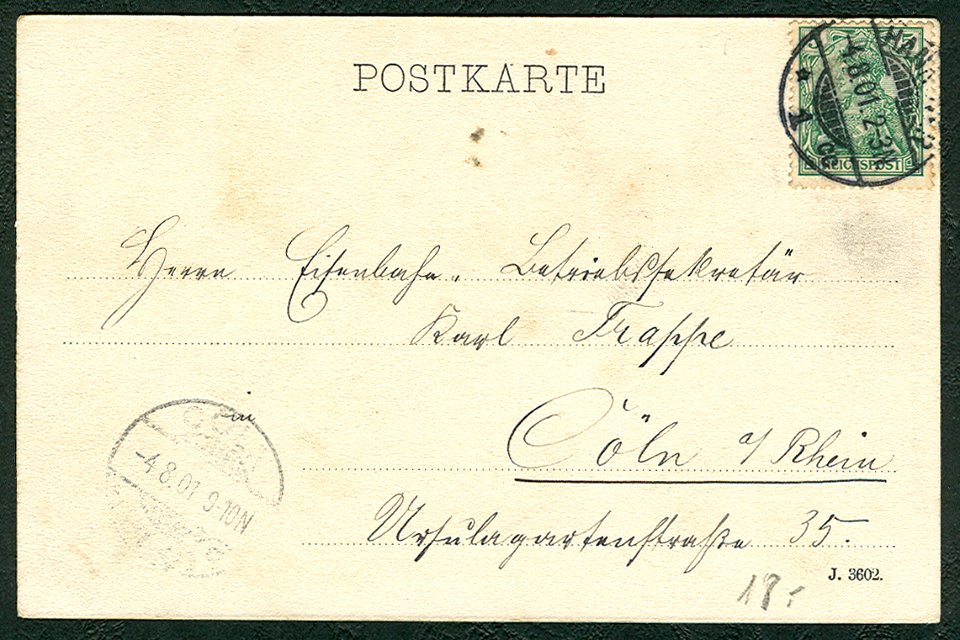 POSTKARTE
-4.8.01. 2-3N
1
REICHSPOST
Herrn Eisenbahn-Betriebssekretär
Karl Trappe
in
Cöln a/ Rhein
-4.8.01. 9-10N
Ursulagartenstraße 35.
J. 3602.
18.-